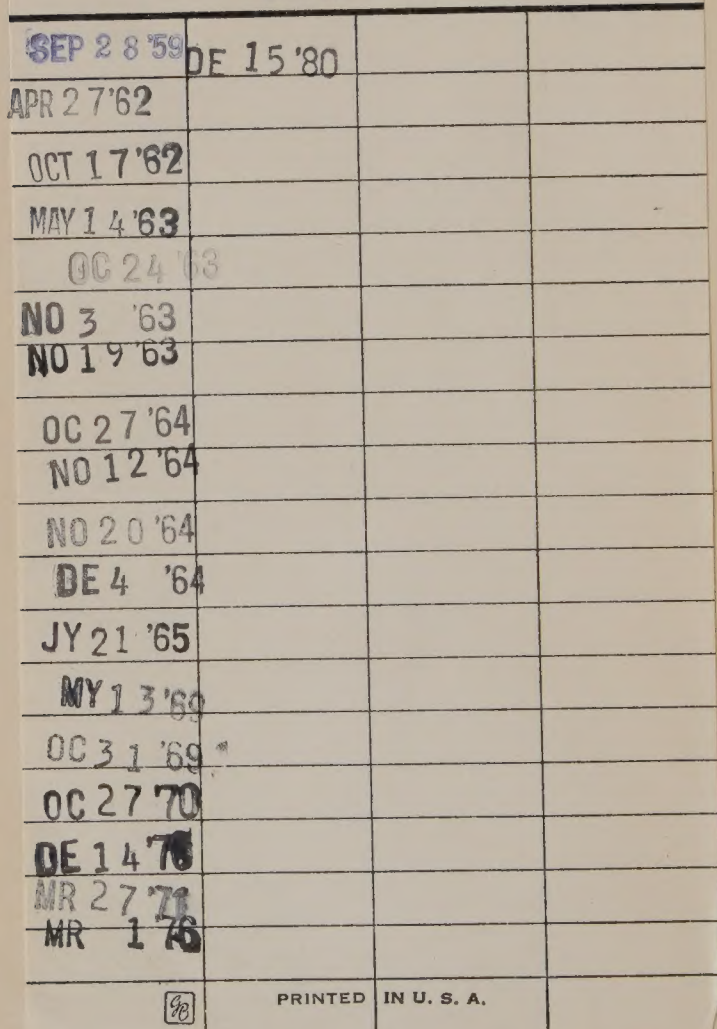 SEP 28 '59
APR 27 '62
OCT 17 '62
MAY 14 '63
OC 24 '63
NO 3 '63
NO 19 '63
OC 27 '64
NO 12 '64
NO 20 '64
DE 4 '64
JY 21 '65
MY 13 '69
OC 31 '69
OC 27 '70
DE 14
MR 27
MR 1 '76
DE 15 '80
PRINTED IN U. S. A.